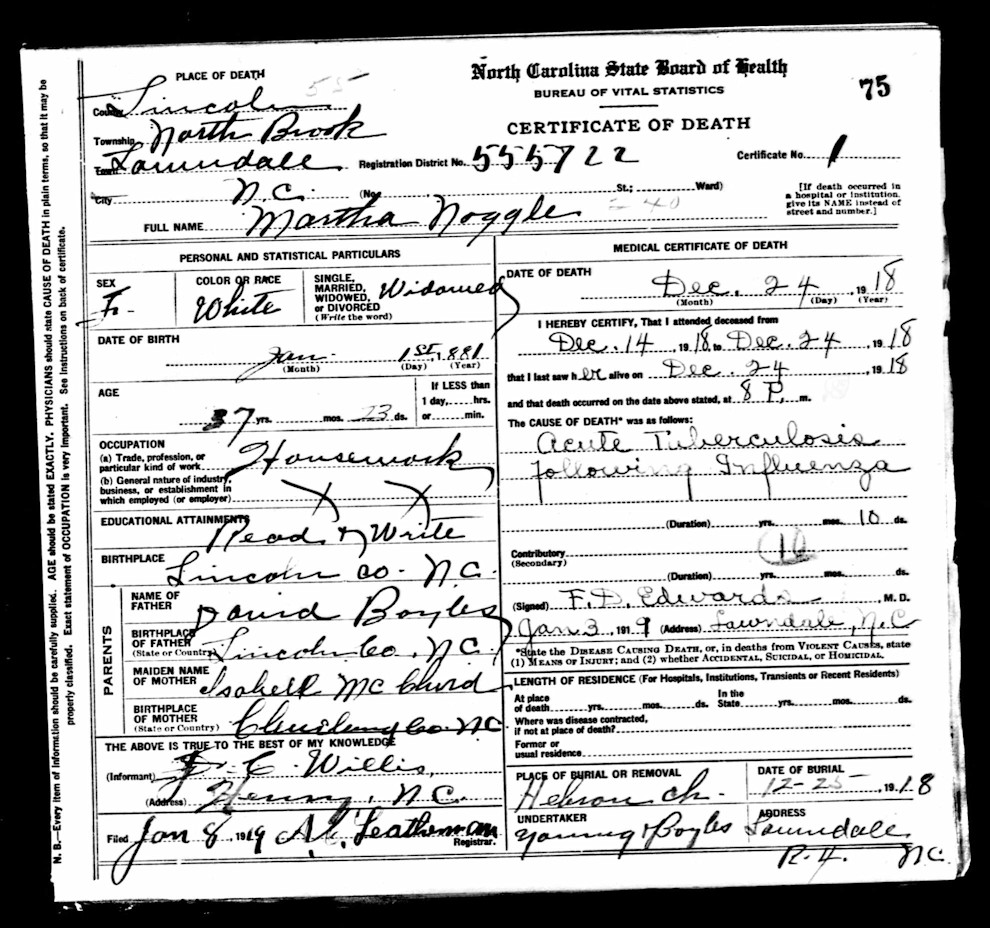 North Carolina State Board of Health
BUREAU OF VITAL STATISTICS
CERTIFICATE OF DEATH
75
PLACE OF DEATH
County Lincoln
Township North Brook
Town Lawndale Registration District No. 555722 Certificate No. 1
City N.C. (No. St.; Ward)
[If death occurred in a hospital or institution, give its NAME instead of street and number.]
FULL NAME Martha Noggle
PERSONAL AND STATISTICAL PARTICULARS
SEX F.
COLOR OR RACE White
SINGLE, MARRIED, WIDOWED, or DIVORCED (Write the word) Widowed
DATE OF BIRTH
Jan. 1st, 1881
(Month) (Day) (Year)
AGE
37 yrs. mos. 23 ds.
If LESS than
1 day, hrs.
or min.
OCCUPATION
(a) Trade, profession, or particular kind of work Housework
(b) General nature of industry, business, or establishment in which employed (or employer) X X
EDUCATIONAL ATTAINMENTS Read & Write
BIRTHPLACE Lincoln Co. N.C.
PARENTS
NAME OF FATHER David Boyles
BIRTHPLACE OF FATHER (State or Country) Lincoln Co. N.C.
MAIDEN NAME OF MOTHER Isabell
BIRTHPLACE OF MOTHER (State or Country) Co. NC
THE ABOVE IS TRUE TO THE BEST OF MY KNOWLEDGE
(Informant) C. Willis
(Address) Henry, N.C.
Filed Jan 8, 1919 Leatherman
Registrar.
MEDICAL CERTIFICATE OF DEATH
DATE OF DEATH
Dec. 24, 1918
(Month) (Day) (Year)
I HEREBY CERTIFY, That I attended deceased from
Dec. 14, 1918, to Dec. 24 1918
that I last saw her alive on Dec. 24, 1918
and that death occurred on the date above stated, at 8 P. m.
The CAUSE OF DEATH* was as follows:
Acute Tuberculosis
following Influenza
(Duration) yrs. mos. 10 ds.
Contributory
(Secondary)
(Duration) yrs. mos. ds.
(Signed) F. D. Edwards M. D.
Jan 3, 1919 (Address) Lawndale, N.C
*State the DISEASE CAUSING DEATH, or, in deaths from VIOLENT CAUSES, state
(1) MEANS OF INJURY; and (2) whether ACCIDENTAL, SUICIDAL, or HOMICIDAL.
LENGTH OF RESIDENCE (For Hospitals, Institutions, Transients or Recent Residents)
At place of death yrs. mos. ds. In the State yrs. mos. ds.
Where was disease contracted,
if not at place of death?
Former or
usual residence
PLACE OF BURIAL OR REMOVAL
Hebron Ch.
DATE OF BURIAL
12-25- 1918
UNDERTAKER
Young & Boyles
ADDRESS
Lawndale
R.4. N.C.
N. B.—Every item of information should be carefully supplied. AGE should be stated EXACTLY. PHYSICIANS should state CAUSE OF DEATH in plain terms, so that it may be
properly classified. Exact statement of OCCUPATION is very important. See instructions on back of certificate.